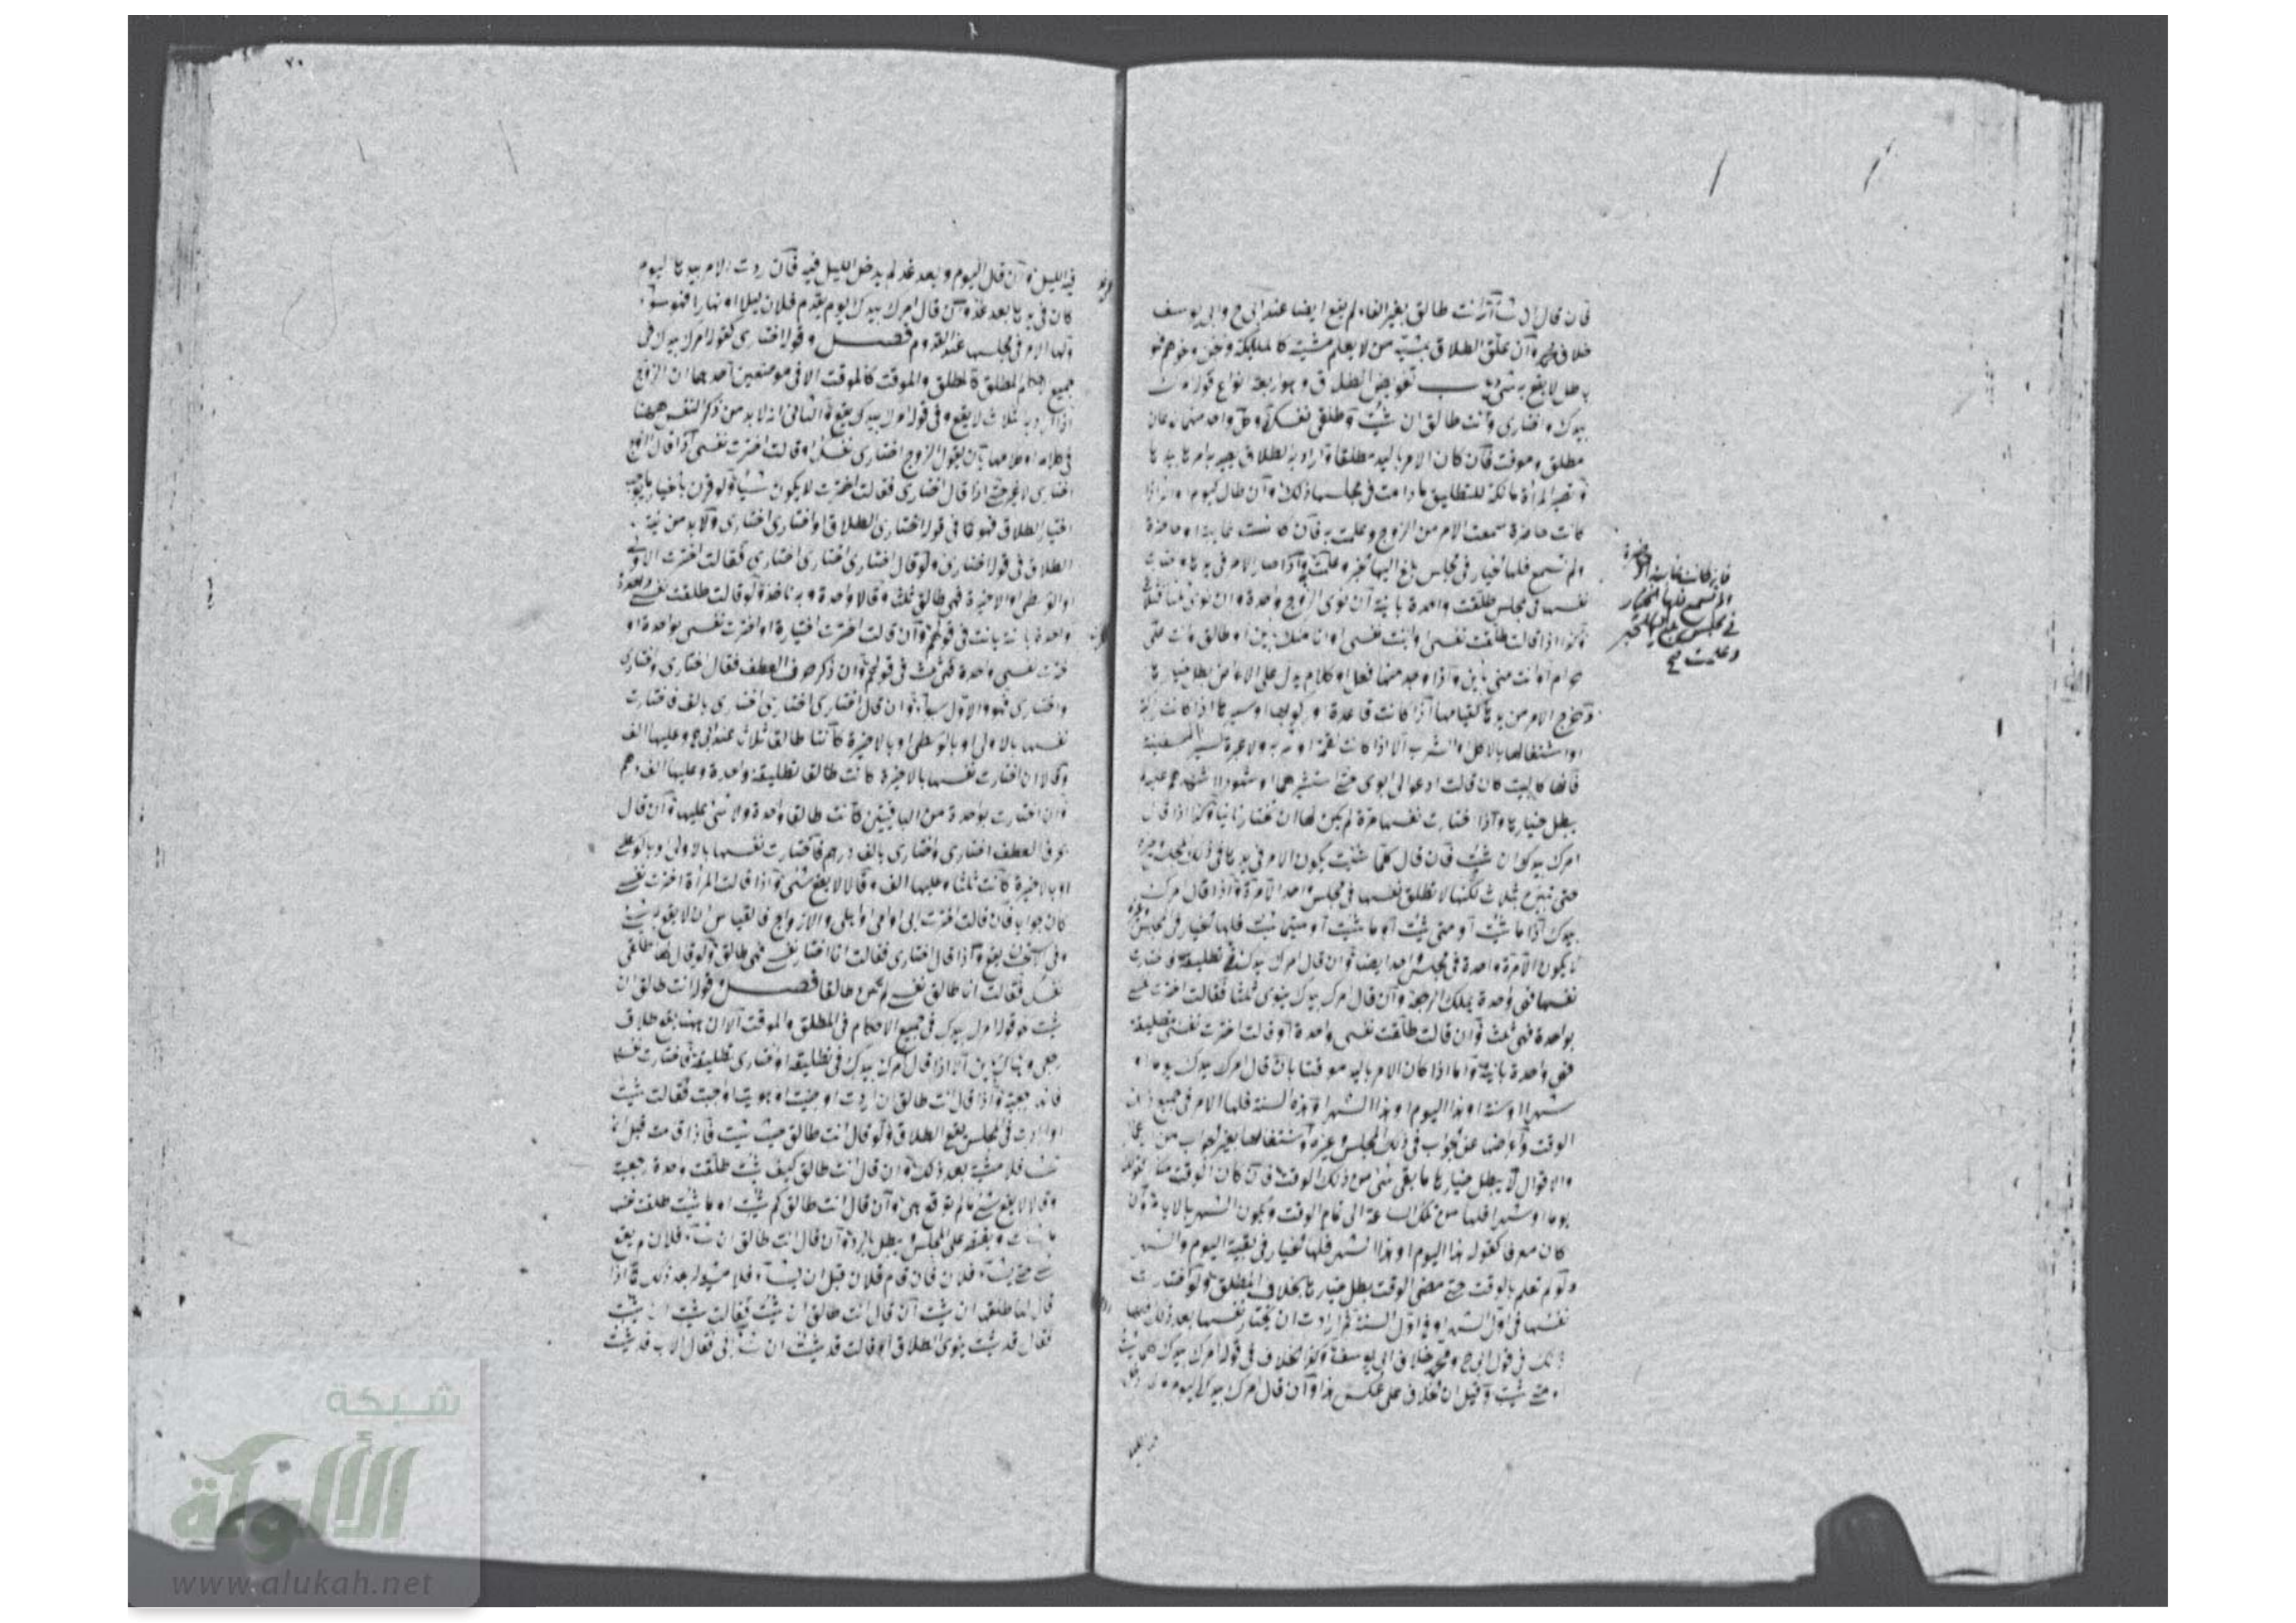 فان قال ان شاء الله انت طالق بغير الفاء لم يقع ايضا عند ابى ح وابى يوسف
خلاف وان علق الطلاق بمشية من لا يعلم مشيته كالملائكة والجن ونحوهم فهو
باطل لا يقع به شئ باب تفويض الطلاق وهو اربعة انواع قوله امرك
بيدك واختارى وانت طالق ان شئت وطلقى نفسك وكل واحد منها
مطلق وموقت فان كان الامر باليد مطلقا واراد به الطلاق يصير الامر بيدها
وتصير المرأة مالكة للتطليق ما دامت فى مجلسها ذلك وان طال كيوم او اذا
كانت حاضرة سمعت الامر من الزوج وعلمت به فان كانت غايبة او حاضرة
ولم تسمع فلها الخيار فى مجلس بلغ اليها الخبر وعلمت به واذا صار الامر فى يدها
نفسها فى مجلس طلقت واحدة باينة ان نوى الزوج واحدة وان نوى ثلثا فثلثا
وكذا اذا قالت طلقت نفسى او ابنت نفسى او انا منك باين او طالق وانت على
حرام او انت منى باين واذا وجد منها فعل او كلام يدل على الاعراض بطل خيارها
ويخرج الامر من يدها كقيامها اذا كانت قاعدة او اذا كانت راكبة
او اشتغالها بالاكل والشرب الا اذا كانت لقمة او شربة ولا عبرة لسير السفينة
فانها كالبيت كان قالت ادعو الى ابوى حتى استشيرهما او شهودا اشهدهم عليه
بطل خيارها واذا اختارت نفسها مرة لم يكن لها ان تختار ثانيا وكذا اذا قال
امرك بيدك ان شئت فان قال كلما شئت يكون الامر فى يدها فى ذلك المجلس وغيره
حتى تبين بثلاث لكنها لا تطلق نفسها فى مجلس واحد الا مرة واذا قال امرك
بيدك اذا ما شئت او متى شئت او ما شئت او متى ما شئت فلها الخيار فى المجلس وغيره
لا يكون الا مرة واحدة فى مجلس واحد ايضا وان قال امرك بيدك فى تطليقة فاختارت
نفسها فهى واحدة يملك الرجعة وان قال امرك بيدك ينوى ثلثا فقالت اخترت نفسى
بواحدة فهى ثلث وان قالت طلقت نفسى واحدة او قالت اخترت نفسى بتطليقة
فهى واحدة باينة واما اذا كان الامر باليد موقتا بان قال امرك بيدك يوما او
شهرا او سنة او هذا اليوم او هذا الشهر او هذه السنة فلها الامر فى جميع ذلك
الوقت واعراضها عن الجواب فى ذلك المجلس وغيره واشتغالها بغير الجواب من
والاقوال لا يبطل خيارها ما بقى شئ من ذلك الوقت فان كان الوقت
يوما او شهرا فلها من تلك الساعة الى تمام الوقت ويكون الشهر بالايام وان
كان معرفا كقوله هذا اليوم او هذا الشهر فلها الخيار فى بقية اليوم والشهر
ولو لم تعلم بالوقت حتى مضى الوقت بطل خيارها بخلاف المطلق ولو اختارت
نفسها فى اول الشهر او فى اول السنة ثم ارادت ان تختار نفسها بعد ذلك فليس لها
ذلك فى قول ابى ح ومحمد خلاف ابى يوسف وكذا الخلاف فى قوله امرك بيدك
متى شئت وقيل ان الخلاف على عكس هذا وان قال امرك بيدك اليوم
فان كانت غايبة او حاضرة
ولم تسمع فلها الخيار
فى مجلس بلغ اليها الخبر
وعلمت صح
٧٠
فيه الليل وان قال اليوم وبعد غد لم يدخل الليل فيه فان ردت الامر بيدها اليوم
كان فى يدها بعد غد وان قال امرك بيدك يوم يقدم فلان ليلا او نهارا فهو سواء
ولها الامر فى مجلسها عند القدوم فصل وقوله اختارى كقوله امرك بيدك فى
جميع احكام المطلق كالمطلق والموقت كالموقت الا فى موضعين احدهما ان الزوج
اذا اراد به الثلاث لا يقع وفى قوله امرك بيدك يقع والثانى انه لا بد من ذكر النفس ههنا
فى كلامه او كلامها بان يقول الزوج اختارى نفسك او قالت اخترت نفسى اذا قال الزوج
اختارى لا غير حتى اذا قال اختارى فقالت اخترت لا يكون شيأ ولو قرن
اختيار الطلاق فهو كما فى قوله اختارى الطلاق او اختارى اختارى ولا بد من نية
الطلاق فى قوله اختارى ولو قال اختارى اختارى اختارى فقالت اخترت الاولى
او الوسطى او الاخيرة فهى طالق ثلث وقالا واحدة وبه ناخذ ولو قالت طلقت نفسى
واحدة باينة بانت فى قولهم وان قالت اخترت اختيارة او اخترت نفسى بواحدة او
اخترت نفسى واحدة فهى ثلث فى قولهم وان ذكر حرف العطف فقال اختارى واختارى
واختارى فهو والاول سواء وان قال اختارى اختارى اختارى بالف فاختارت
نفسها بالاولى او بالوسطى او بالاخيرة كانت طالقا ثلاث عند ابى ح وعليها الف
وقالا ان اختارت نفسها بالاخيرة كانت طالقا تطليقة واحدة وعليها الف درهم
وان اختارت بواحدة من الباقيتين كانت طالقا واحدة ولا شئ عليها وان قال
بحرف العطف اختارى واختارى بالف درهم فاختارت نفسها بالاولى او بالوسطى
او بالاخيرة كانت ثلثا وعليها الف وقالا لا يقع شئ واذا قالت المرأة اخترت نفسى
كان جوابا فان قالت اخترت ابى او امى او اهلى والازواج فالقياس ان لا يقع به شئ
وفى الاستحسان يقع واذا قال اختارى فقالت انا اختار نفسى فهى طالق ولو قال لها طلقى
نفسك فقالت انا طالق نفسى لم تكن طالقا فصل وقوله انت طالق ان
شئت نحو قوله امرك بيدك فى جميع الاحكام فى المطلق والموقت الا ان ههنا يقع طلاق
رجعى وهناك باين الا اذا قال امرك بيدك فى تطليقة او اختارى تطليقة فاختارت نفسها
فانه رجعية واذا قال انت طالق ان اردت او رضيت او هويت او احببت فقالت شئت
او اردت فى المجلس يقع الطلاق ولو قال انت طالق حيث شئت فاذا قامت قبل ان
تشاء فلا مشية بعد ذلك وان قال انت طالق كيف شئت طلقت واحدة رجعية
وقالا لا يقع شئ ما لم توقع هى وان قال انت طالق كم شئت او ما شئت طلقت نفسها
ما شاءت ويقتصر على المجلس ويبطل بالرد وان قال انت طالق ان شاء فلان لم يقع
شئ حتى يشاء فلان فان قام فلان قبل ان يشاء فلا مشية له بعد ذلك واذا
قال لها طلقى ان شئت او قال انت طالق ان شئت فقالت شئت ان شئت
فقال قد شئت ينوى الطلاق او قالت قد شئت ان شاء ابى فقال الاب قد شئت
شبكة
الألوكة
www.alukah.net